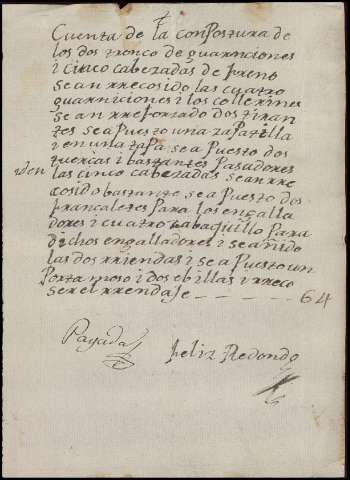 Cuenta de la conpostura de
los dos tronco de guarniciones
i cinco cabezadas de freno
se an rrecosido las cuatro
guarniciones i los collerines
se an rreforzado dos tiran
tes se a puesto una zapatilla
i en una tapa se a puesto dos
tuercas i bastantes pasadores
iden las cinco cabezadas se an rre
cosido bastante se a puesto dos
francaletes para los engalla
dores i cuatro tabaquillo para
dichos engalladores i se añido
las dos rriendas i se a puesto un
Porta moso i dos ebillas i rreco
ser el rrendaje - - - - - 64
Pagada
Feliz Redondo